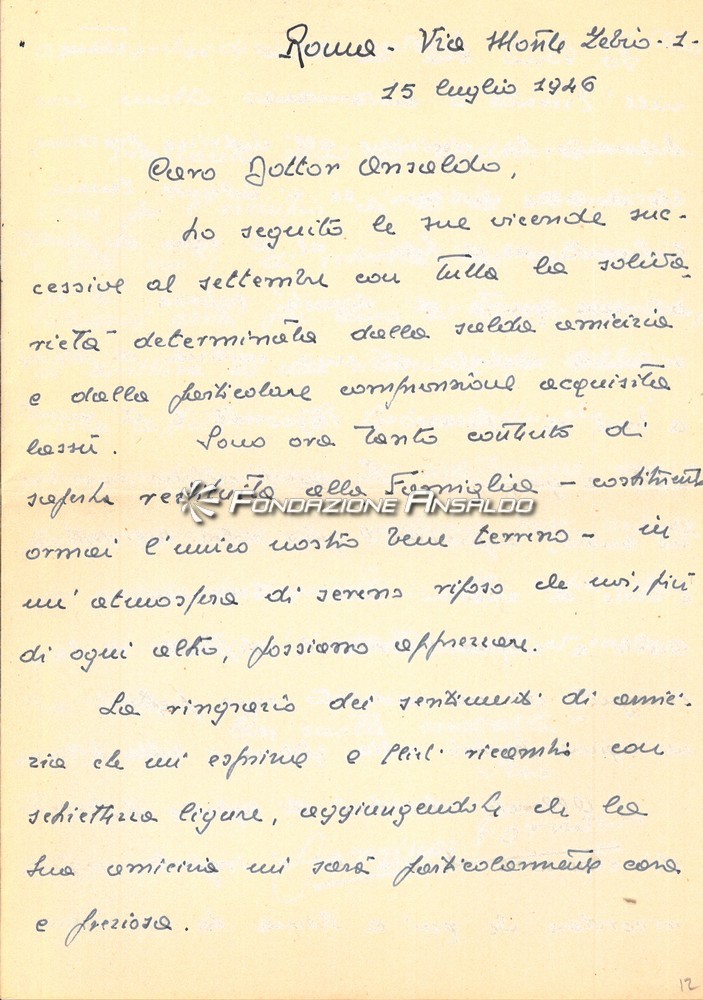 Roma - Via Monte Zebio - 1 -
15 luglio 1946
Caro Dottor Ansaldo,
ho seguito le sue vicende suc-
cessive al settembre con tutta la solida-
rietà determinata dalla salda amicizia
e dalla particolare comprensione acquisita
lassù. Sono ora tanto contento di
saperla restituita alla Famiglia - costituente
FONDAZIONE ANSALDO
ormai l'unico nostro bene terreno - in
un'atmosfera di sereno riposo che noi, più
di ogni altro, possiamo apprezzare.
La ringrazio dei sentimenti di amici-
zia che mi esprime e glieli ricambio con
schiettezza ligure, aggiungendole che la
Sua amicizia mi sarà particolarmente cara
e preziosa.
12